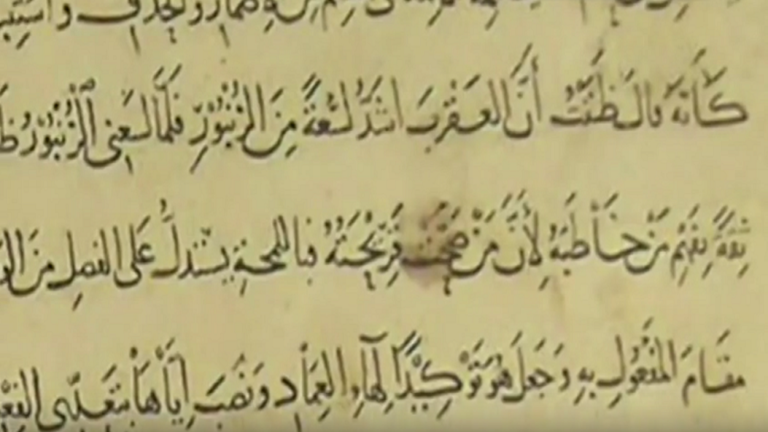 كَأَنَّهُ قَالَ ظَنَنْتُ أَنَّ العَقْرَبَ اَشَدُّ لَسْعَةً مِنَ الزُّنْبُوْرِ فَلَمَّا لَسَعَنِى الزُّنْبُوْرُ
ثِقَةً بِفَهْمِ مَنْ خَاطَبَهُ لِأَنَّ مَنْ صَحَّتْ قَرِيْحَتُهُ فَبِاللَّمْحَةِ يَسْتَدِلُّ عَلَى الفَصْلِ مِنَ
مَقَامَ المَفْعُوْلِ بِهِ وَجَعَلَ هُوَ تَوْكِيْدًا لِهَاءِ العِمَادِ وَنَصَبَ اِيَّاهَا بِتَعَدِّى